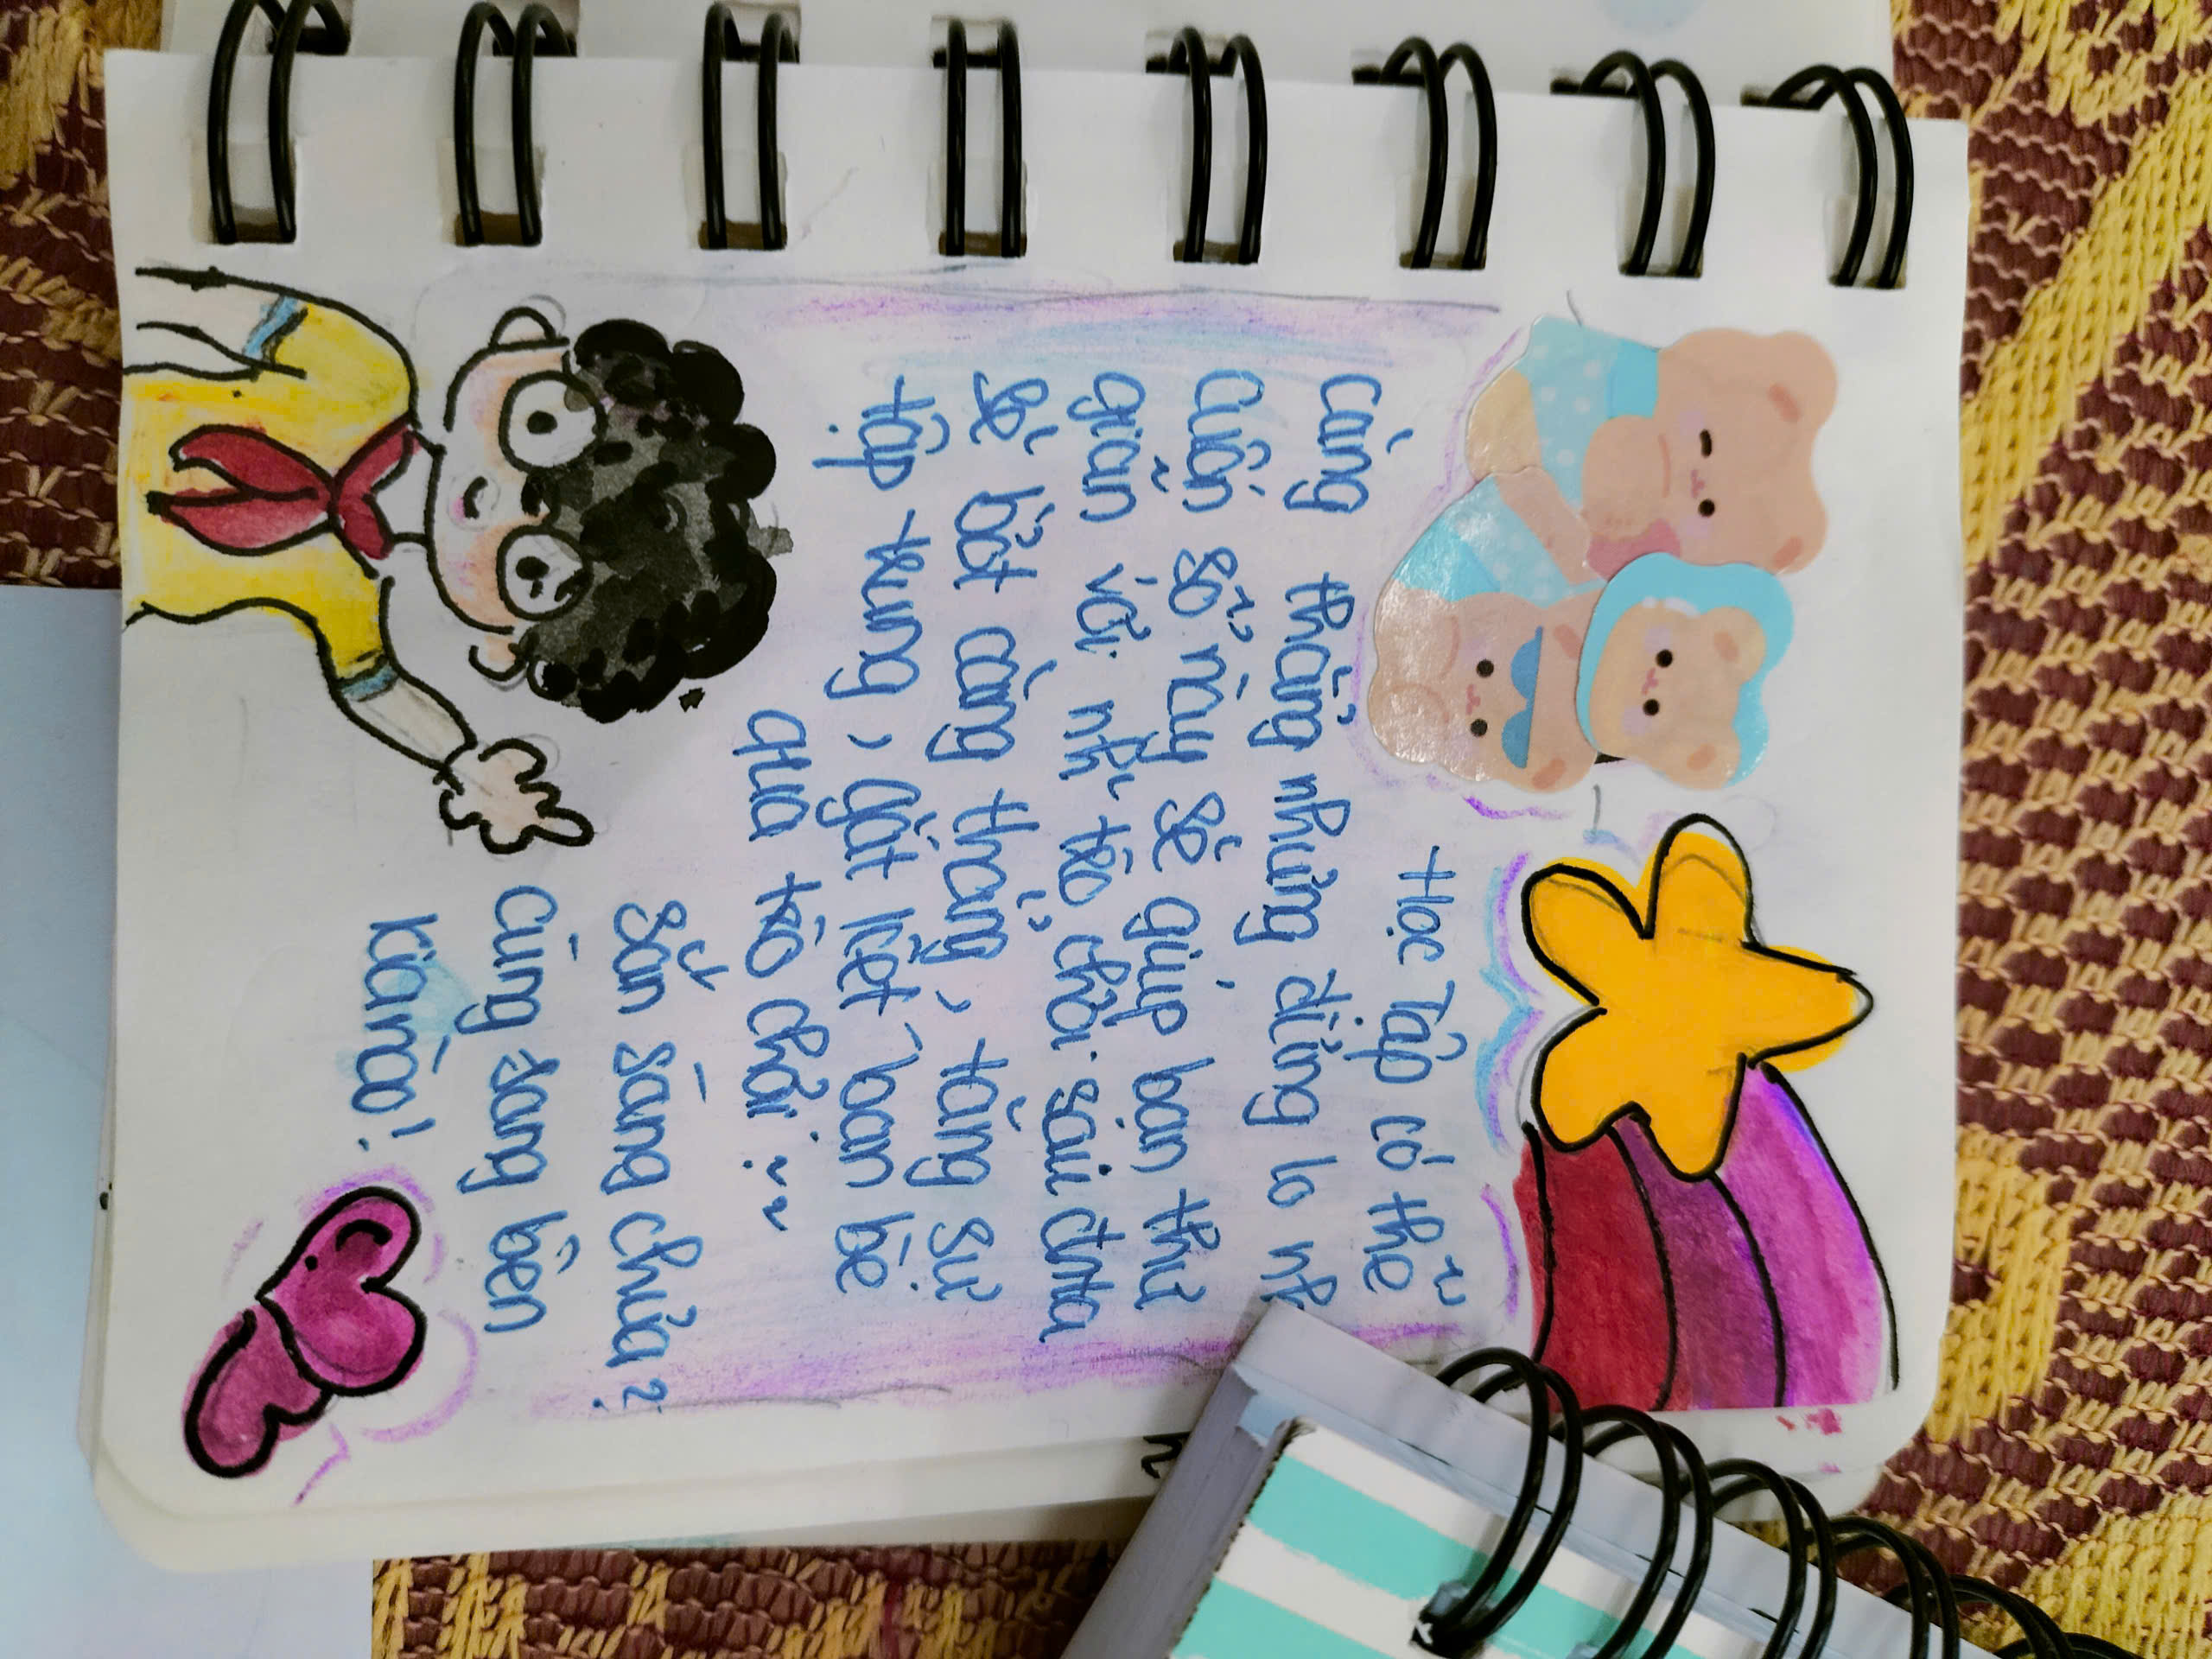 Học Tập có thể
căng thẳng nhưng đừng lo nh
Cuốn sổ này sẽ giúp bạn thư
giãn với nh~ trò chơi.
sẽ bớt căng thẳng, tăng sự
tập trung, gắt kết bạn bè
qua trò chơi
Sẵn sàng chưa?
cùng sang bên
kia nào!